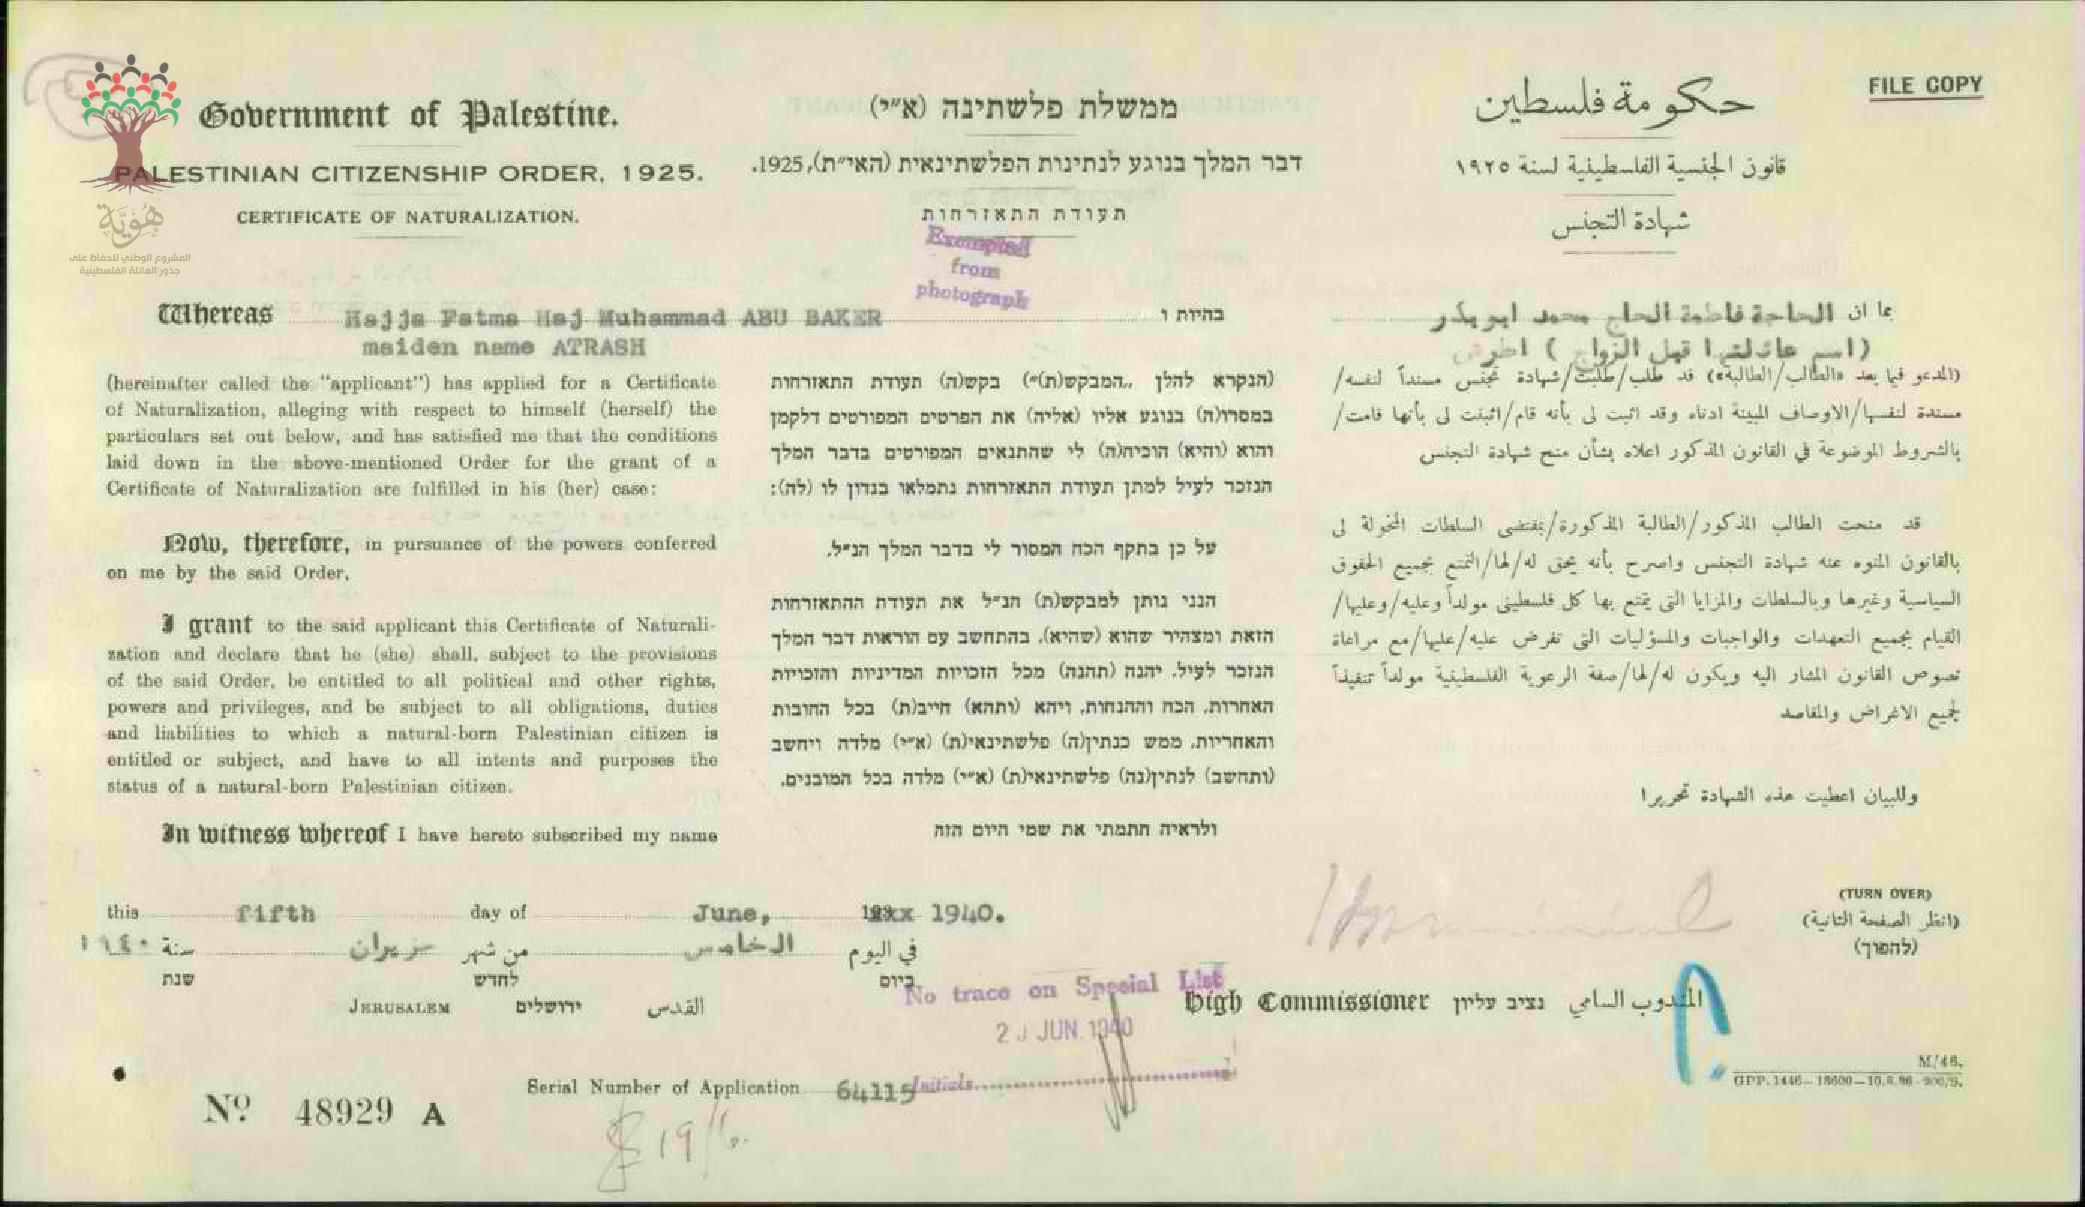 FILE COPY
Government of Palestine.
PALESTINIAN CITIZENSHIP ORDER, 1925.
CERTIFICATE OF NATURALIZATION.
هُويَّة
المشروع الوطني للحفاظ على
جذور العائلة الفلسطينية
ממשלת פלשתינה (א״י)
דבר המלך בנוגע לנתינות הפלשתינאית (האי״ת), 1925.
תעודת התאזרחות
Exempted
from
photograph
حكومة فلسطين
قانون الجنسية الفلسطينية لسنة ١٩٢٥
شهادة التجنس
Whereas Hajja Fatma Haj Muhammad ABU BAKER
maiden name ATRASH
(hereinafter called the "applicant") has applied for a Certificate
of Naturalization, alleging with respect to himself (herself) the
particulars set out below, and has satisfied me that the conditions
laid down in the above-mentioned Order for the grant of a
Certificate of Naturalization are fulfilled in his (her) case:
Now, therefore, in pursuance of the powers conferred
on me by the said Order,
I grant to the said applicant this Certificate of Naturali-
zation and declare that he (she) shall, subject to the provisions
of the said Order, be entitled to all political and other rights,
powers and privileges, and be subject to all obligations, duties
and liabilities to which a natural-born Palestinian citizen is
entitled or subject, and have to all intents and purposes the
status of a natural-born Palestinian citizen.
In witness whereof I have hereto subscribed my name
בהיות ו
(הנקרא להלן ,,המבקש(ת)״) בקש(ה) תעודת התאזרחות
במסרו(ה) בנוגע אליו (אליה) את הפרטים המפורטים דלקמן
והוא (והיא) הוכיח(ה) לי שהתנאים המפורטים בדבר המלך
הנזכר לעיל למתן תעודת התאזרחות נתמלאו בנדון לו (לה):
על כן בתקף הכח המסור לי בדבר המלך הנ״ל.
הנני נותן למבקש(ת) הנ״ל את תעודת ההתאזרחות
הזאת ומצהיר שהוא (שהיא), בהתחשב עם הוראות דבר המלך
הנזכר לעיל, יהנה (תהנה) מכל הזכויות המדיניות והזכויות
האחרות, הכח וההנחות, ויהא (ותהא) חייב(ת) בכל החובות
והאחריות, ממש כנתין(ה) פלשתינאי(ת) (א״י) מלדה ויחשב
(ותחשב) לנתין(נה) פלשתינאי(ת) (א״י) מלדה בכל המובנים.
ולראיה חתמתי את שמי היום הזה
بما ان الحاجة فاطمة الحاج محمد ابو بكر
(اسم عائلتها قبل الزواج) اطرش
(المدعو فيما بعد «الطالب/الطالبة») قد طلب/طلبت/شهادة تجنس مسنداً لنفسه/
مسندة لنفسها/الاوصاف المبينة ادناه وقد اثبت لى بأنه قام/اثبتت لى بأنها قامت/
بالشروط الموضوعة في القانون المذكور اعلاه بشأن منح شهادة التجنس
قد منحت الطالب المذكور/الطالبة المذكورة/بمقتضى السلطات المخولة لى
بالقانون المنوه عنه شهادة التجنس واصرح بأنه يحق له/لها/التمتع بجميع الحقوق
السياسية وغيرها وبالسلطات والمزايا التى يتمتع بها كل فلسطينى مولداً وعليه/وعليها/
القيام بجميع التعهدات والواجبات والمسؤليات التى تفرض عليه/عليها/مع مراعاة
نصوص القانون المشار اليه ويكون له/لها/صفة الرعوية الفلسطينية مولداً تنفيذاً
لجميع الاغراض والمقاصد
وللبيان اعطيت هذه الشهادة تحريرا
this fifth day of June, 1940.
في اليوم الخامس من شهر حزيران سنة ١٩٤٠
ביום לחדש שנת
JERUSALEM ירושלים القدس
(TURN OVER)
(انظر الصفحة الثانية)
(להפוך)
No trace on Special List
JUN. 1940
Initials
High Commissioner נציב עליון المندوب السامي
Serial Number of Application 64115
No 48929 A
19/6.
M/46.
GPP. 1446—18600—10.8.36—200/S.